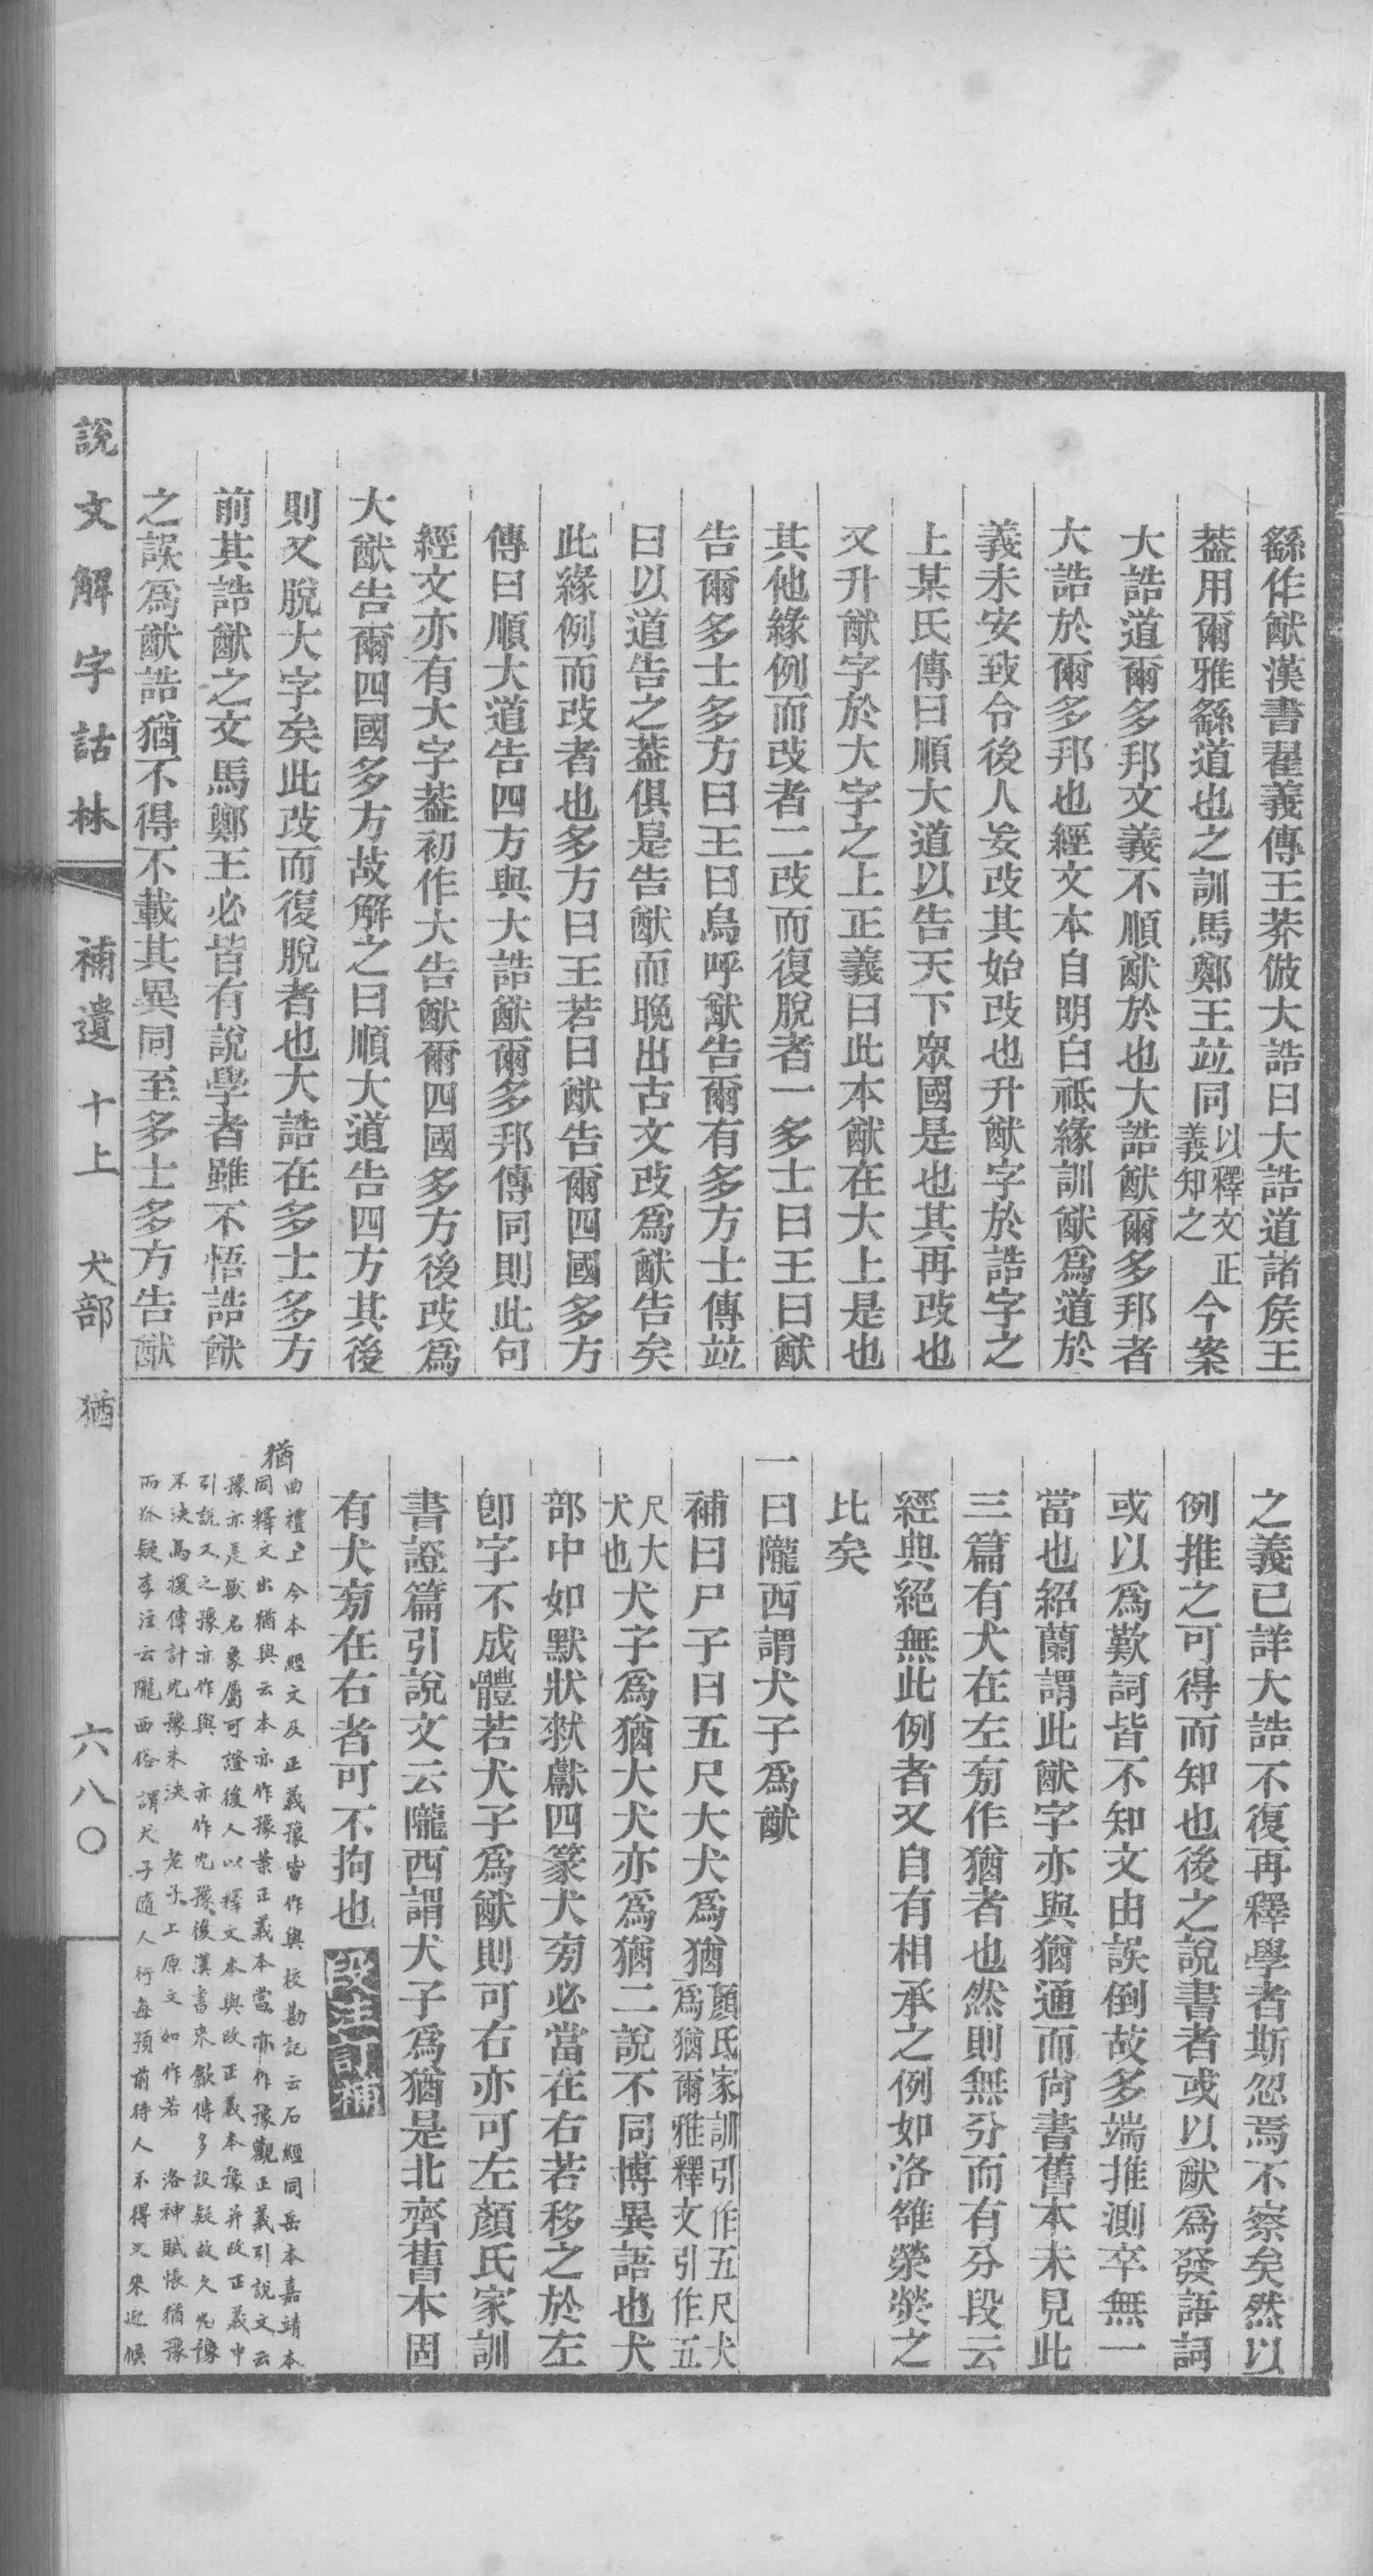 繇作猷漢書翟義傳王莽倣大誥曰大誥道諸矦王
葢用爾雅繇道也之訓馬鄭王竝同以釋文正義知之今案
大誥道爾多邦文義不順猷於也大誥猷爾多邦者
大誥於爾多邦也經文本自明白祗緣訓猷爲道於
義未安致令後人妄改其始改也升猷字於誥字之
上某氏傳曰順大道以告天下眾國是也其再改也
又升猷字於大字之上正義曰此本猷在大上是也
其他緣例而改者二改而復脫者一多士曰王曰猷
告爾多士多方曰王曰烏呼猷告爾有多方士傳竝
曰以道告之葢俱是告猷而晚出古文改爲猷告矣
此緣例而改者也多方曰王若曰猷告爾四國多方
傳曰順大道告四方與大誥猷爾多邦傳同則此句
經文亦有大字葢初作大告猷爾四國多方後改爲
大猷告爾四國多方故解之曰順大道告四方其後
則又脫大字矣此改而復脫者也大誥在多士多方
前其誥猷之文馬鄭王必皆有說學者雖不悟誥猷
之誤爲猷誥猶不得不載其異同至多士多方告猷
之義已詳大誥不復再釋學者斯忽焉不察矣然以
例推之可得而知也後之說書者或以猷爲發語詞
或以爲歎詞皆不知文由誤倒故多端推測卒無一
當也紹蘭謂此猷字亦與猶通而尙書舊本未見此
三篇有犬在左㫄作猶者也然則無分而有分段云
經典絕無此例者又自有相承之例如洛雒榮熒之
比矣
一曰隴西謂犬子爲猷
補曰尸子曰五尺大犬爲猶顏氏家訓引作五尺犬爲猶爾雅釋文引作五
尺大犬也犬子爲猶大犬亦爲猶二說不同博異語也犬
部中如默狀猌獻四篆犬㫄必當在右若移之於左
卽字不成體若犬子爲猷則可右亦可左顏氏家訓
書證篇引說文云隴西謂犬子爲猶是北齊舊本固
有犬㫄在右者可不拘也 段注訂補
猶
曲禮上今本經文及正義豫皆作與校勘記云石經同岳本嘉靖本
同釋文出猶與云本亦作豫案正義本當亦作豫觀正義引說文云
豫亦是獸名象屬可證後人以釋文本與改正義本豫并改正義中
引說文之豫亦作與 亦作冘豫後漢書來歙傳多設疑故久冘豫
不決馬援傳計冘豫未決 老子上原文如作若 洛神賦悵猶豫
而狐疑李注云隴西俗謂犬子隨人行每預前待人不得又來迎候
說文解字詁林 補遺 十上 犬部 猶 六八〇